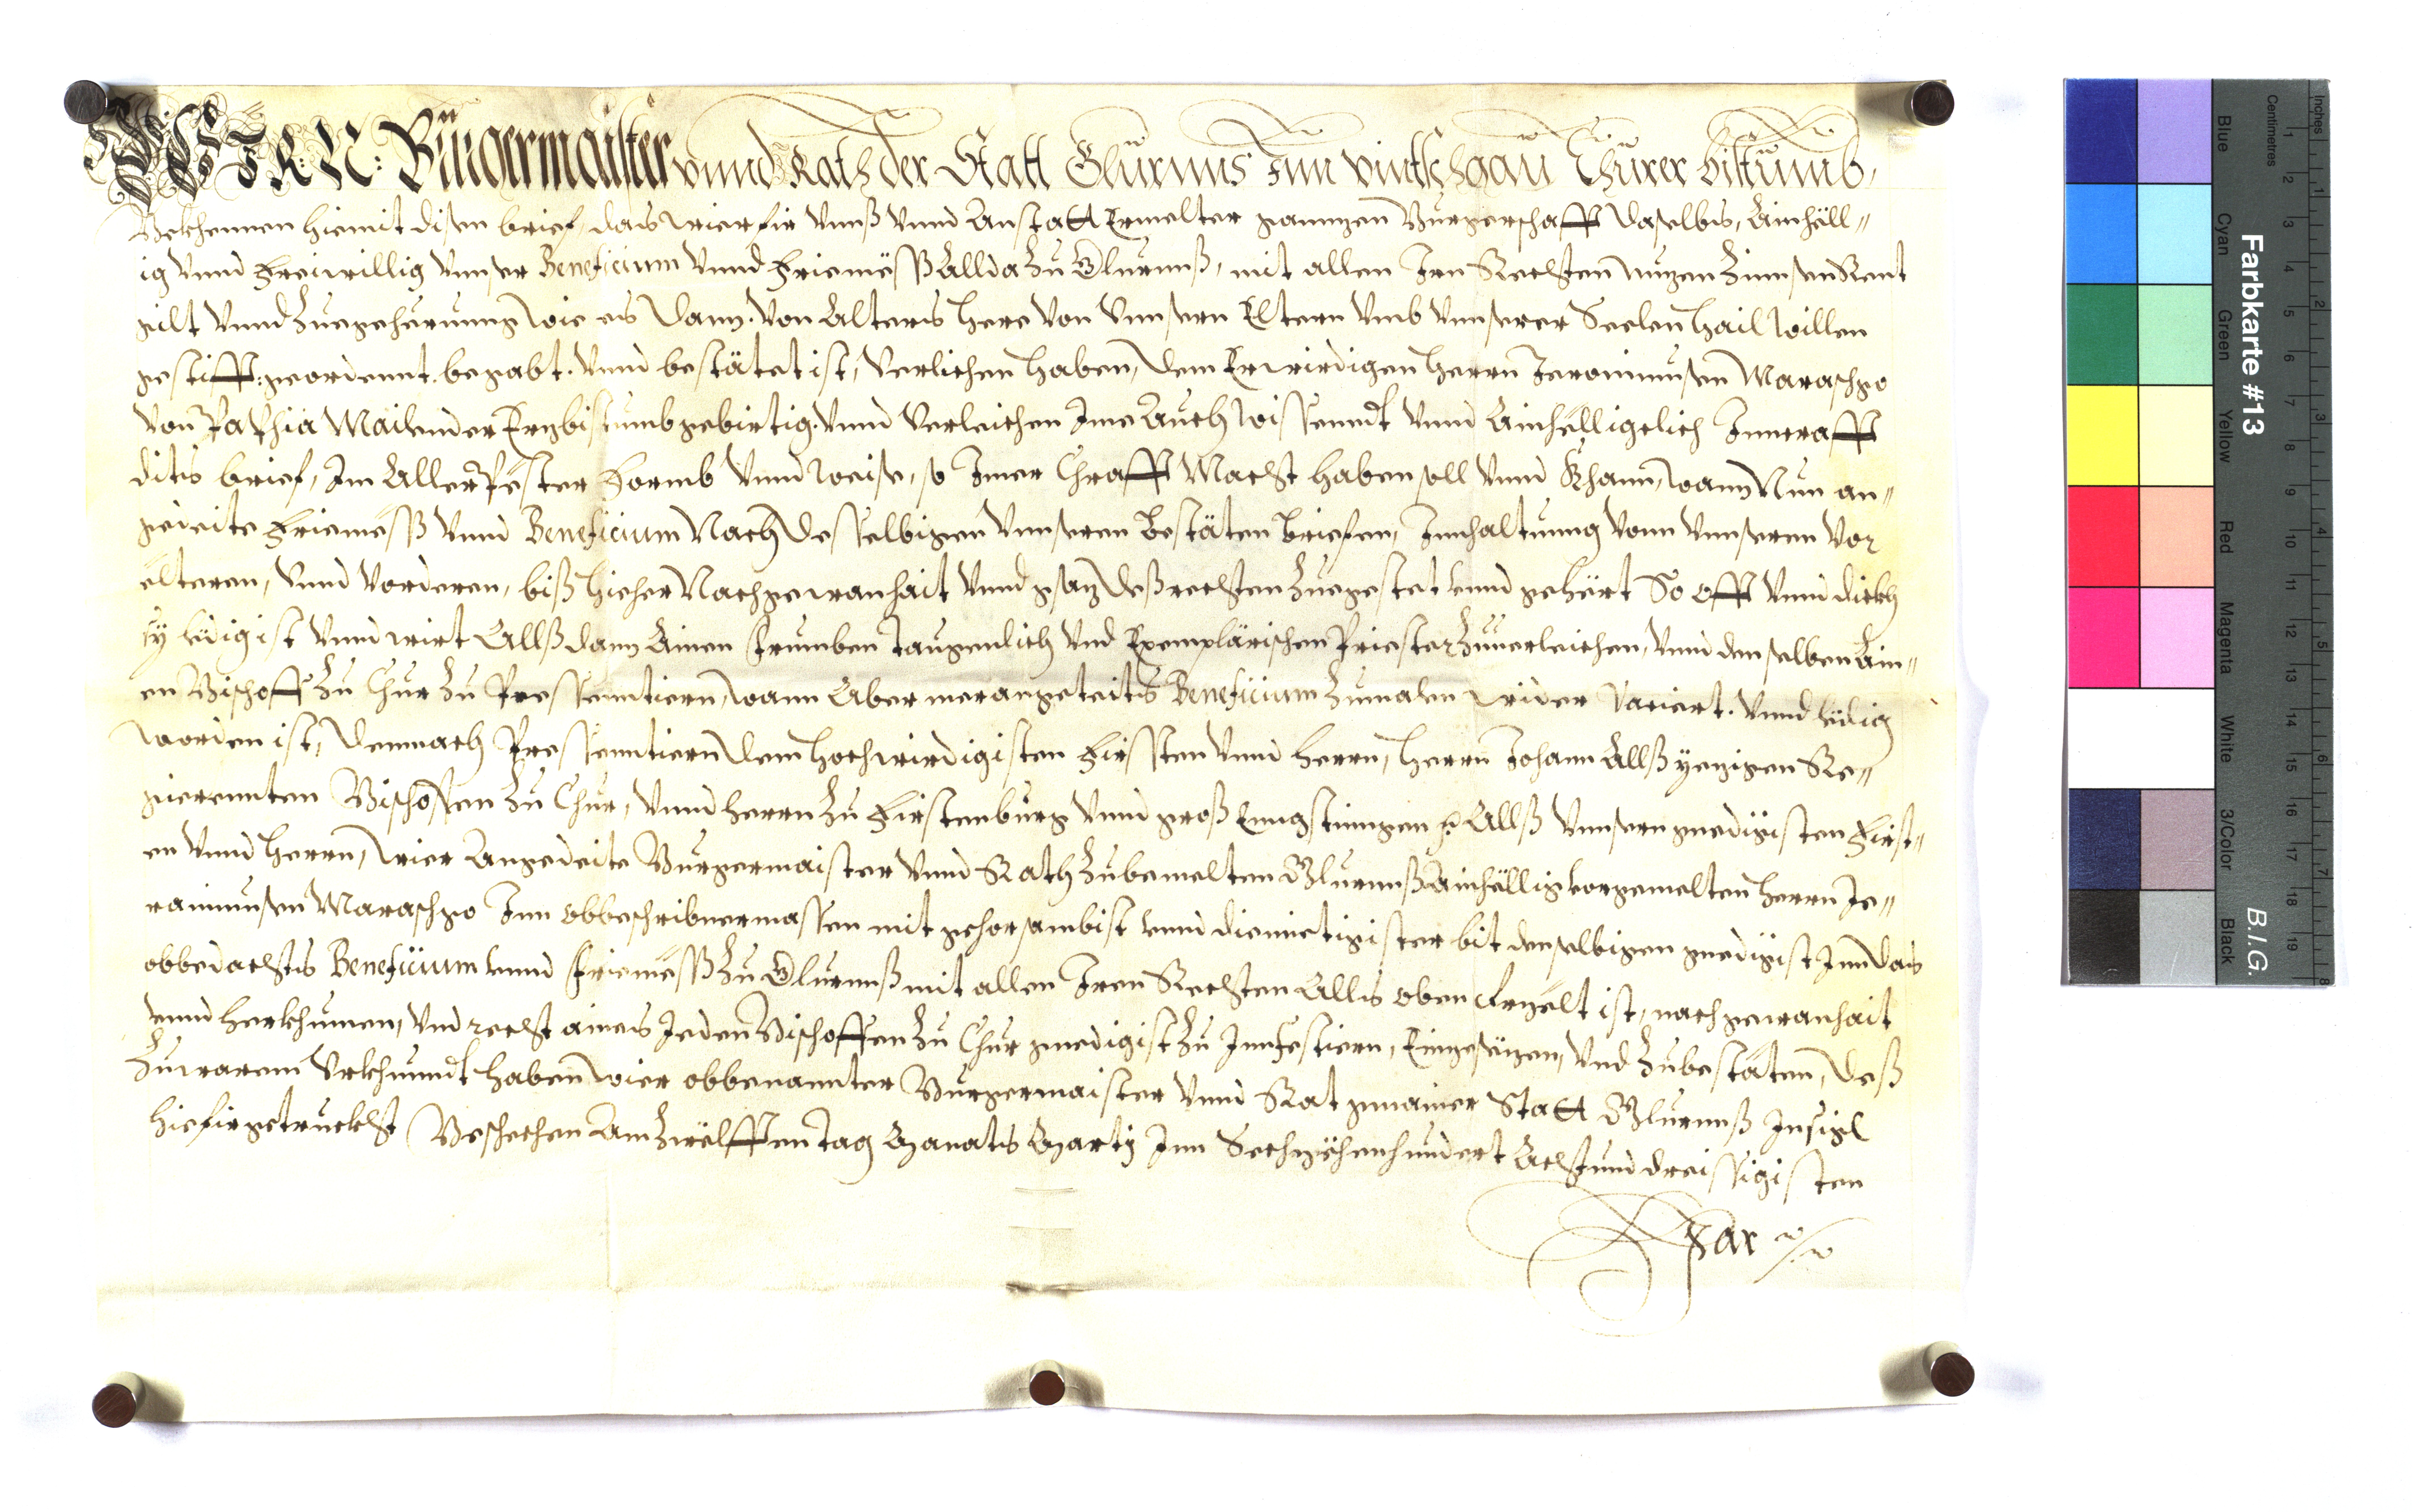 WIR N: Bürgermaister vnnd Rath der Statt Glurnns Inn vintschgau Churer bistumb,
Bekhennen hiemit disen brief, das wier fir vnnß vnnd Anstatt Ermelter ganntzen Burgerschafft daselbs, Ainhöll"
ig vnnd Freiwillig vnnser Beneficium vnnd Friemëss Allda zu Glurnnß, mit allen Irn Rechsten nutzen Zinnsen Rent
gilt vnnd Zuegeherunng wie es dann von Alters here von vnnsern Eltern vmb vnnserer Seelen hail willen
gestifft: geordennt. begabt. vnnd bestätet ist, verlichen haben, dem Erwirdigen herrn Jeronimußen Maraschgo
von Paffia Mailender Ertzbistumb gebirtig. vnnd verleichen Ime Auch wissenndt vnnd Ainhelligclich Inncrafft
dits brief, Im Aller Pëster Formb vnnd weise, so Imer Chrafft Macht haben soll vnnd Khann, wann Nun an"
gedeite Friemëss vnnd Beneficium Nach desselbigen vnnseren bestäten briefen, Innhaltunng vonn vnnseren vor
elteren, vnnd vorderen, biß hieher Nach gewanhait vnnd gsatz deß rechsten Zuegestet vnnd gehërt So offt vnnd dickh
sy ledig ist vnnd wirt Allß dann Ainen frumben taugenlich vnd Exemplärischen Priester zuuerleichen, vnnd denselben Ain"
en Bischoff zu Chur zu Pressenntiern, wann Aber merangeteits Beneficium zumalen wider variert. vnnd ledig
worden ist, demnach Pressenntiern dem hochwirdigisten Firssten vnnd herrn, herrn Johann Allß yezigen Re"
gierennten Bischoffen zu Chur, vnnd herrn zu Firstenburg vnnd groß Enngstinngen Allß vnnsern gnedigisten First"
en vnnd herrn, wier Angedeite Burgermaister vnnd Rath zu bemelten Glurnnß Ainhëllig vorgemelten herrn Je"
ronimußen Maraschgo Inn obbeschribnermassen mit gehorsambist vnnd diemietigister bit denselbigen gnedigist Inn das
obbedachts Beneficium vnnd Friemëss zu Glurnnß mit allen Iren Rechsten Alls oben Erzelt ist, nach gewanhait
vnnd herkhumen, vnd recht aines Ieden Bischoffen zu Chur gnedigist zu Innfestiern, Einzesëtzen, vnd zubestäten, deß
zu warem Vrkhunndt haben wier obbenannter Burgermaister vnnd Rat gmainer Statt Glurnnß Insigl
hiefirgetruckht Beschechen Am zwëlfften tag Monats Marty Inn Sechzëhenhundert Acht vnd dreissigisten
Jar
Farbkarte #13
B.I.G.
Inches
Centimetres
1 2 3 4 5 6 7 8
1 2 3 4 5 6 7 8 9 10 11 12 13 14 15 16 17 18 19
Blue
Cyan
Green
Yellow
Red
Magenta
White
3/Color
Black